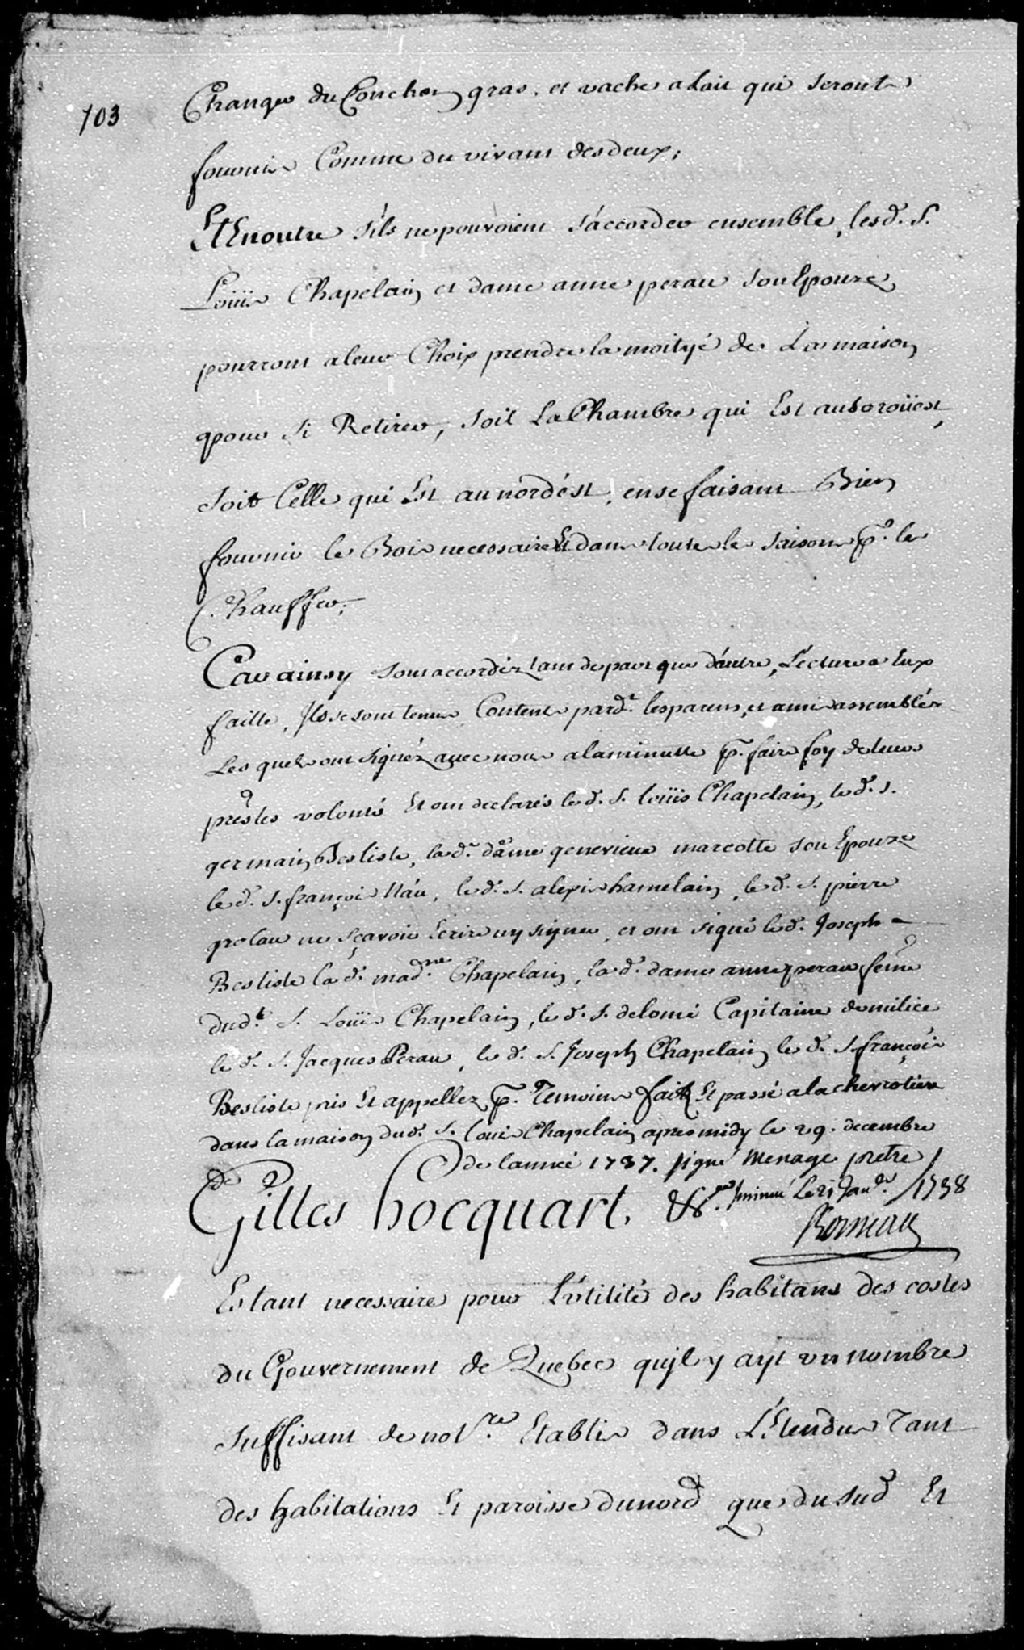 103
Change du Cochon gras, et vache a lait qui seront
fournie Comme du vivant des deux;
Et Enoutre s'ils ne pouvoient s'accorder ensemble, lesd. S.
Loüis Chapelain et dame anne perau son Epouze
pourront a leur Choix prendre la moityé de La maison
pour si Retirer, soit La Chambre qui Est au soroüest,
soit Celle qui Est au nordést, en se faisant Bien
fournir le Bois necessaire Et dans toute les saisons pr. les
Chauffer;
Car ainsy sont accordéz tant de part que d'autre, Lecture a Eux
faitte, Ils se sont tenus Contents pard. les parens, et amis assemblés
Les quels ont signéz avec nous a la minutte pr. faire foy de leurs
pre͞stes volontés Et ont declarés led. S. Loüis Chapelain, led. S.
germain Besliste, lad. dame genevieve marcotte son Epouze
led. S. françois Náu, led. S. alexis hamelain, led. S. pierre
grolau ne sçavoir Ecrire ny signer, et ont signé led. Joseph
Besliste lad. madme Chapelain, lad. dame anne perau feme
dudt. S. Loüis Chapelain, led. S. delomé Capitaine de milice
led. S. Jacques Perau, led. S. Joseph Chapelain led. S. françois
Besliste pris Et appellez pr. Temoins fait Et passé a la chevrotiere
dans la maison dud. S. Loüis Chapelain apres midy le 29. decembre
de l'année 1737. signé Menage pretre
Gilles hocquart. &c. 1738
Boisseau
Estant necessaire pour L'utilité des habitans des costes
du Gouvernement de Quebec qu'jl y ayt un nombre
suffisant de not.re Etablis dans L'Etendue Tant
des habitations Et paroisse du nord que du sud Et